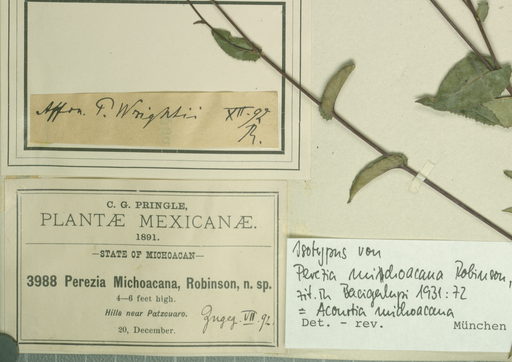 Affin. P. Wrightii XII. 92
R.
C. G. PRINGLE,
PLANTÆ MEXICANÆ.
1891.
—STATE OF MICHOACAN—
3988 Perezia Michoacana, Robinson, n. sp.
4—6 feet high.
Hills near Patzcuaro.
20, December.
VII. 92.
Isotypus von
Perezia michoacana Robinson,
zit. in Bacigalupi 1931: 72
= Acourtia michoacana
Det. – rev. München